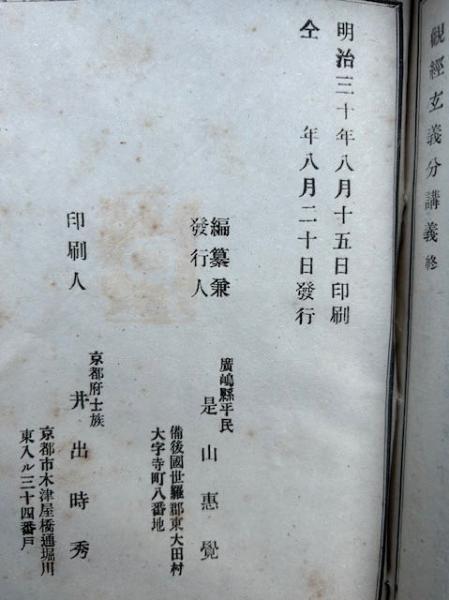 觀經玄義分講義終
明治三十年八月十五日印刷
仝年八月二十日發行
編纂兼
發行人
廣嶋縣平民
是山惠覺
備後國世羅郡東大田村
大字寺町八番地
印刷人
京都府士族
井出時秀
京都市木津屋橋通堀川
東入ル三十四番戶